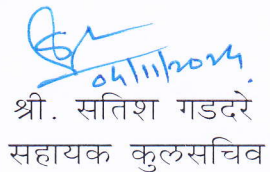 04/11/2024
श्री. सतिश गडदरे
सहायक कुलसचिव